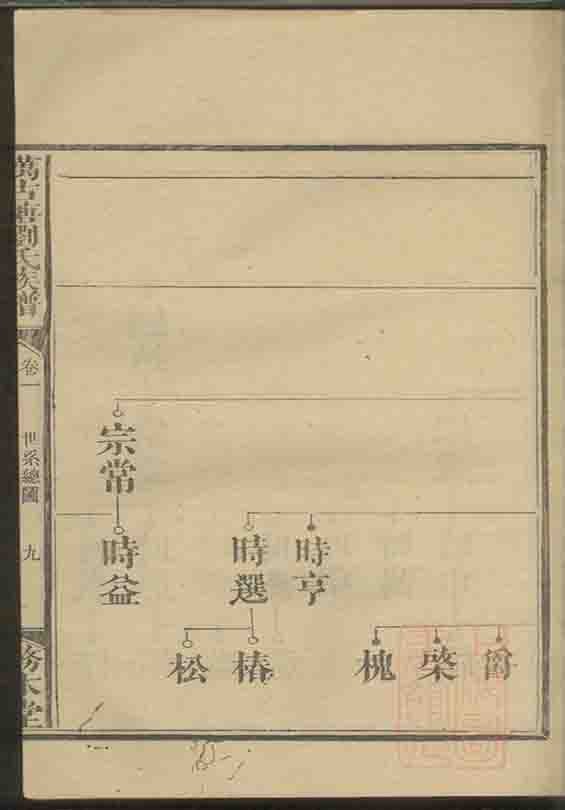 萬古塘劉氏族譜
卷一
世系總圖
九
務本堂
宗常
時亨
時選
時益
槐
椿
松